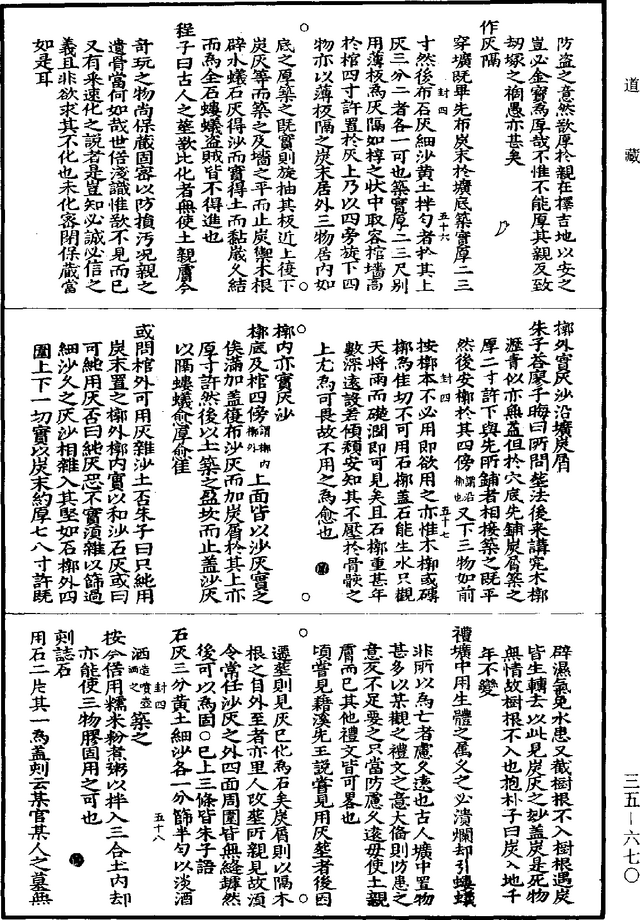 道藏
防盗之意然欲厚於親在擇吉地以安之
豈必金寶為厚哉不惟不能厚其親反致
刼塚之禍愚亦甚矣
作灰隔
穿壙既畢先布炭末於壙底築實厚二三
寸然後布石灰細沙黄土拌勻者於其上
封四 五十六
灰三分二者各一可也築實厚二三尺别
用薄板為灰隔如椁之状中取容棺墻高
於棺四寸許置於灰上乃以四旁旋下四
物亦以薄板隔之炭末居外三物居内如
底之厚築之既實則旋抽其板近上復下
炭灰等而築之及墻之平而止炭禦木根
辟水蟻石灰得沙而實得土而黏歲久結
而為金石螻蟻盗賊皆不得進也
程子曰古人之塟欲比化者無使土親膚今
奇玩之物尚保藏固宻以防損汚况親之
遺骨當何如哉世俗淺識惟欲不見而已
又有求速化之説者是豈知必誠必信之
義且非欲求其不化也未化宻閉保藏當
如是耳
槨外實灰沙沿壙炭屑
朱子荅廖子晦曰所問塟法後来講究木槨
瀝青似亦無益但於穴底先鋪炭屑築之
厚二寸許下與先所鋪者相接築之既平
然後安槨於其四傍謂沿槨也又下三物如前
封四 五十七
按槨本不必用即欲用之亦惟木槨或磚
槨為佳切不可用石槨蓋石能生水只觀
天将雨而礎潤即可見矣且石槨重甚年
數深遠設若傾頽安知其不壓於骨骸之
上尤為可畏故不用之為愈也
槨内亦實灰沙
槨底及棺四傍謂槨内槨外上面皆以沙灰實之
俟滿加蓋復布沙灰而加炭屑於其上亦
厚寸許然後以土築之盈坎而止盖沙灰
以隔螻蟻愈厚愈佳
或問棺外可用灰雜沙土否朱子曰只純用
炭末置之槨外槨内實以和沙石灰或曰
可純用灰否曰純灰恐不實須雜以篩過
細沙久之灰沙相雜入其堅如石槨外四
圍上下一切實以炭末約厚七八寸許既
辟濕氣免水患又截樹根不入樹根遇炭
皆生轉去以此見炭灰之妙盖炭是死物
無情故樹根不入也抱朴子曰炭入地千
年不變
禮壙中用生體之属久之必潰爛却引螻蟻
非所以為亡者慮久遠也古人壙中置物
甚多以某觀之禮文之意大備則防患之
意反不足要之只當防慮久遠毋使土親
膚而已其他禮文皆可畧也
頃嘗見籍溪先王説嘗見用灰塟者後因
遷塟則見灰已化為石矣炭屑則以隔木
根之自外至者亦里人攺塟所親見故須
令常任沙灰之外四面周圍皆無縫罅然
後可以為固○已上三條皆朱子語
石灰三分黄土細沙各一分篩半勻以淡酒
封四 五十八
洒造噴壺洒之築之
按分倍用糯米粉煮粥以拌入三合土内却
亦能使三物膠固用之可也
刻誌石
用石二片其一為盖刻云某官某人之墓無
三五－六七〇